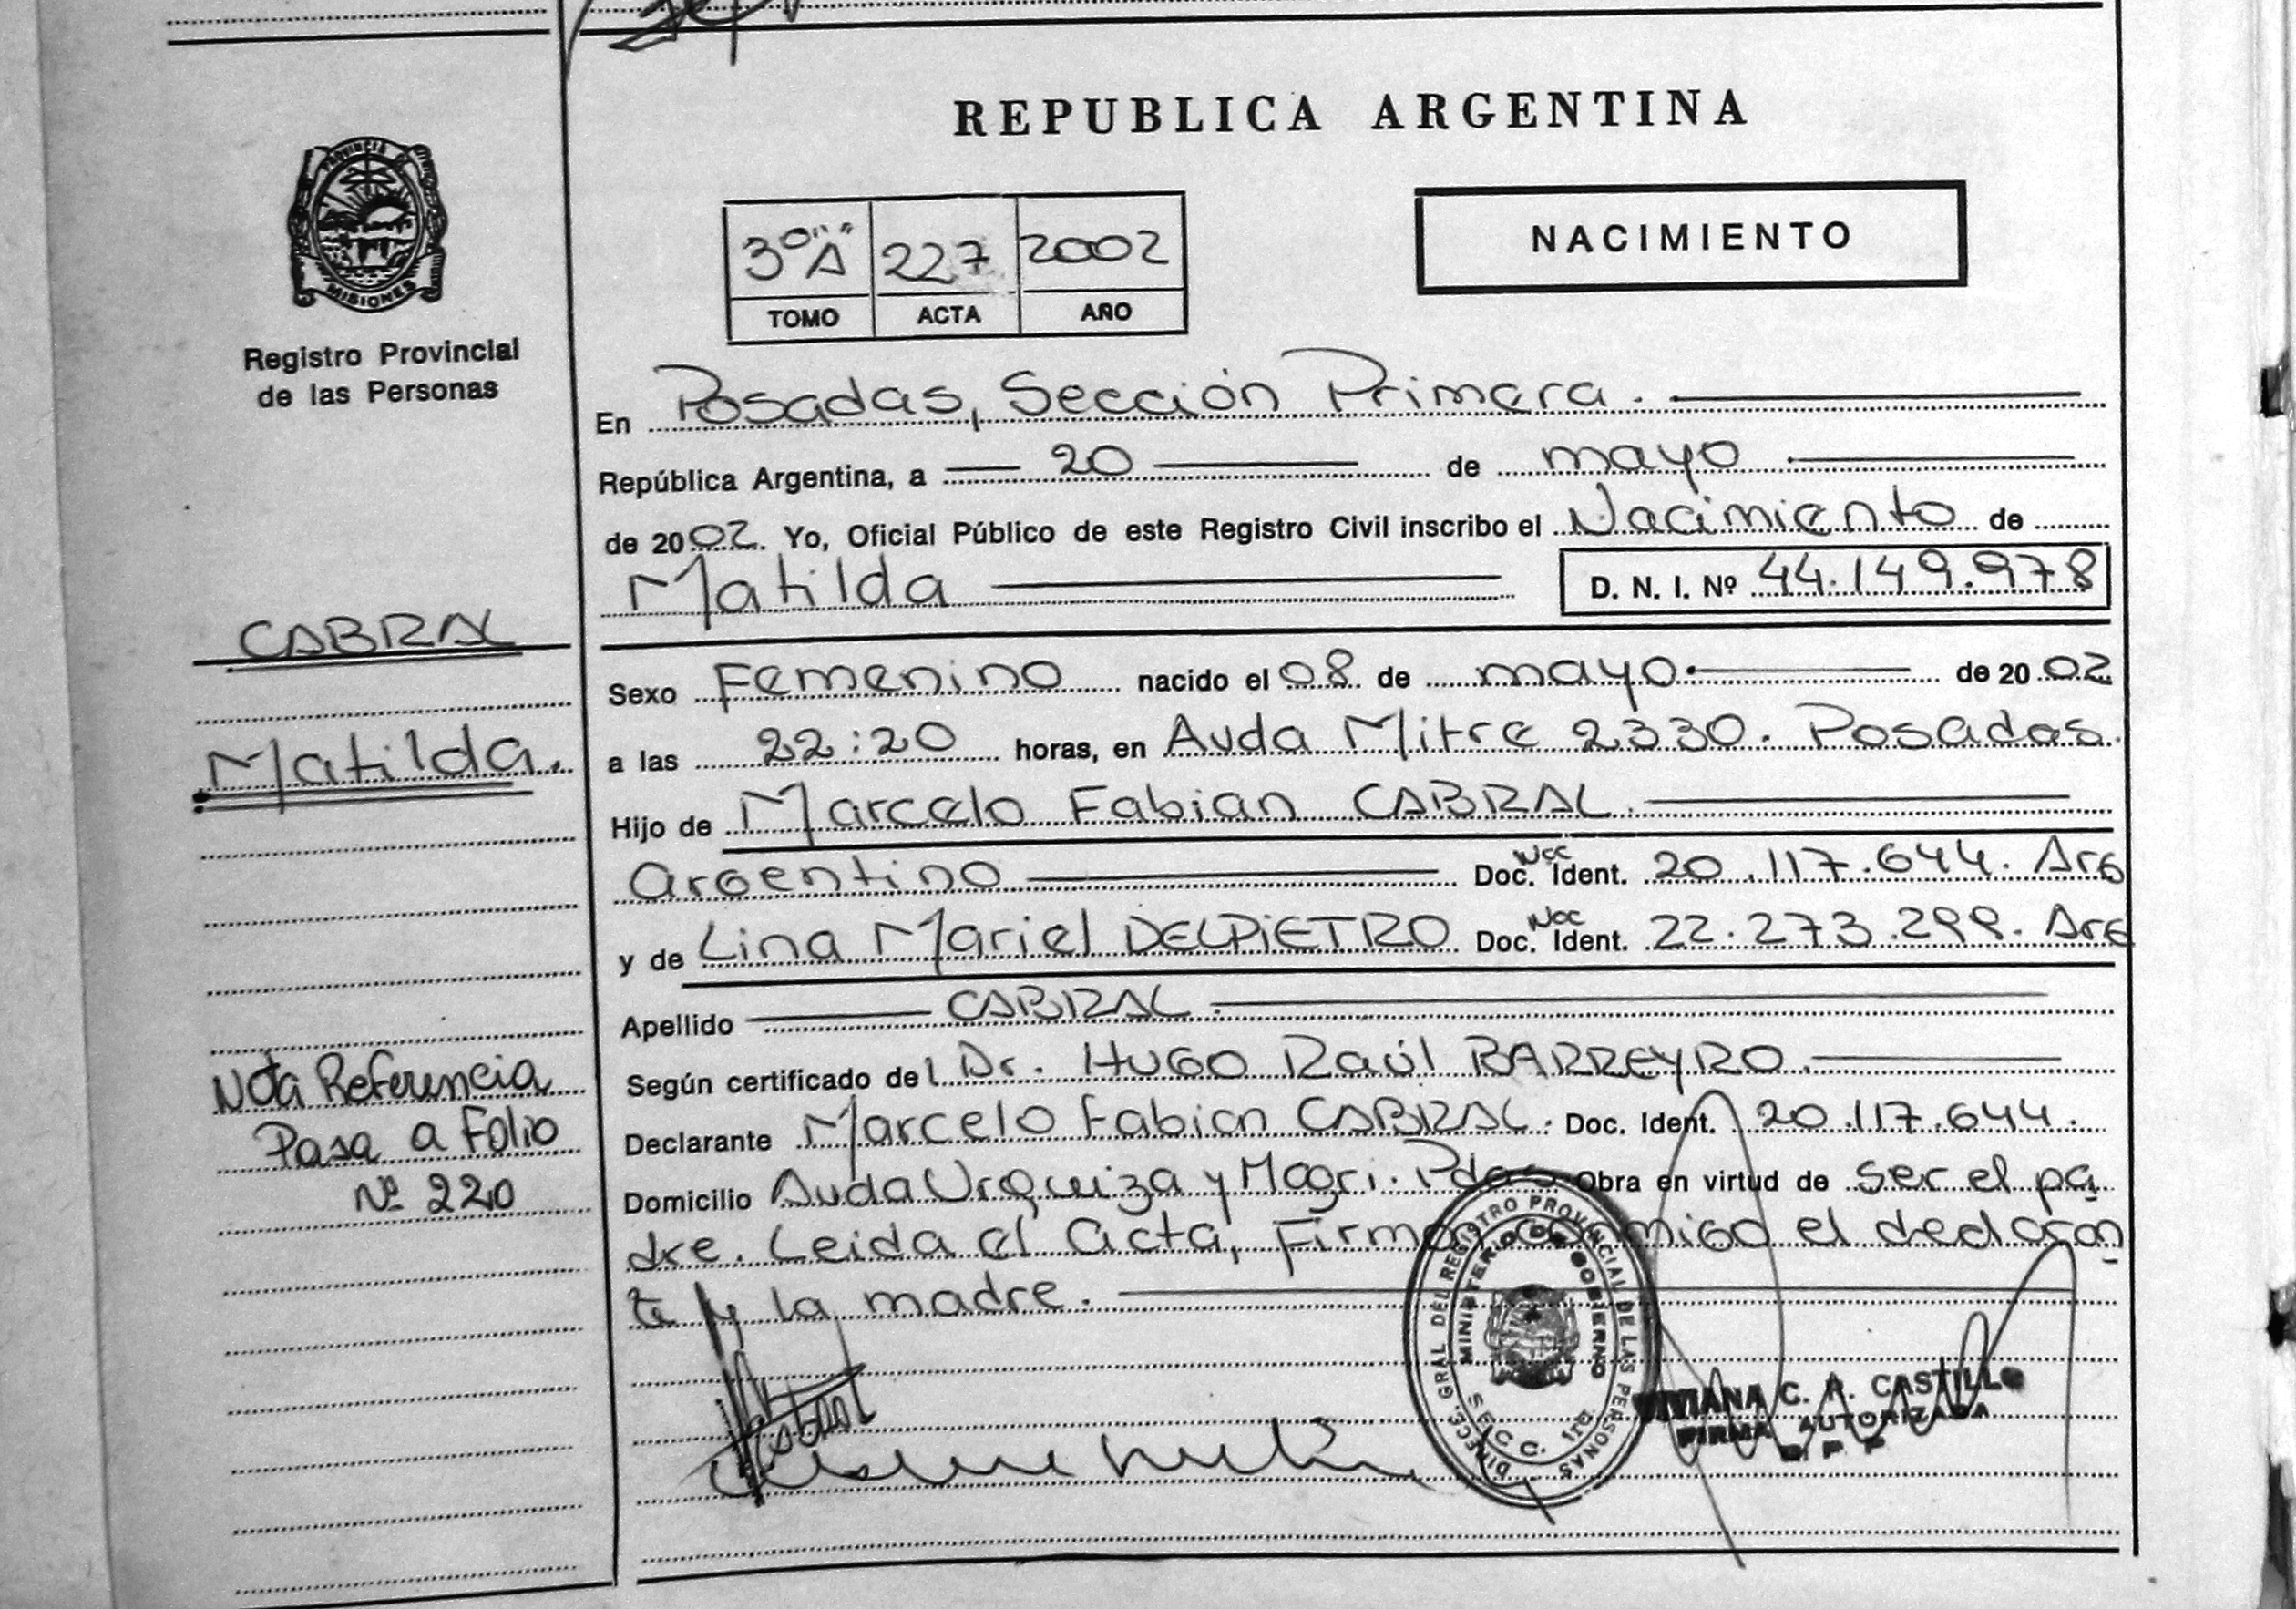 REPUBLICA ARGENTINA
PROVINCIA D
MISIONES
Registro Provincial
de las Personas
3º "A" 227 2002
TOMO ACTA AÑO
NACIMIENTO
En Posadas, Sección Primera.
República Argentina, a 20 de mayo
de 2002. Yo, Oficial Público de este Registro Civil inscribo el Nacimiento de
Matilda D. N. I. Nº 44.149.978
CABRAL
Matilda.
Sexo Femenino nacido el 08 de mayo de 2002
a las 22:20 horas, en Avda Mitre 2330. Posadas.
Hijo de Marcelo Fabian CABRAL.
Argentino Doc. Nac Ident. 20.117.644. Arg
y de Lina Mariel DELPIETRO Doc. Nac Ident. 22.273.299. Arg
Apellido CABRAL.
Según certificado del Dr. HUGO Raúl BARREYRO.
Declarante Marcelo Fabian CABRAL. Doc. Ident. 20.117.644.
Domicilio Avda Urquiza y Magri. Pdas Obra en virtud de ser el pa
dre. Leida el acta, Firman conmigo el declaran
te y la madre.
Nota Referencia
Pasa a Folio
Nº 220
DIRECC. GRAL DEL REGISTRO PROVINCIAL DE LAS PERSONAS
MINISTERIO DE GOBIERNO
SECC. 1ra.
VIVIANA C. A. CASTILLO
FIRMA AUTORIZADA